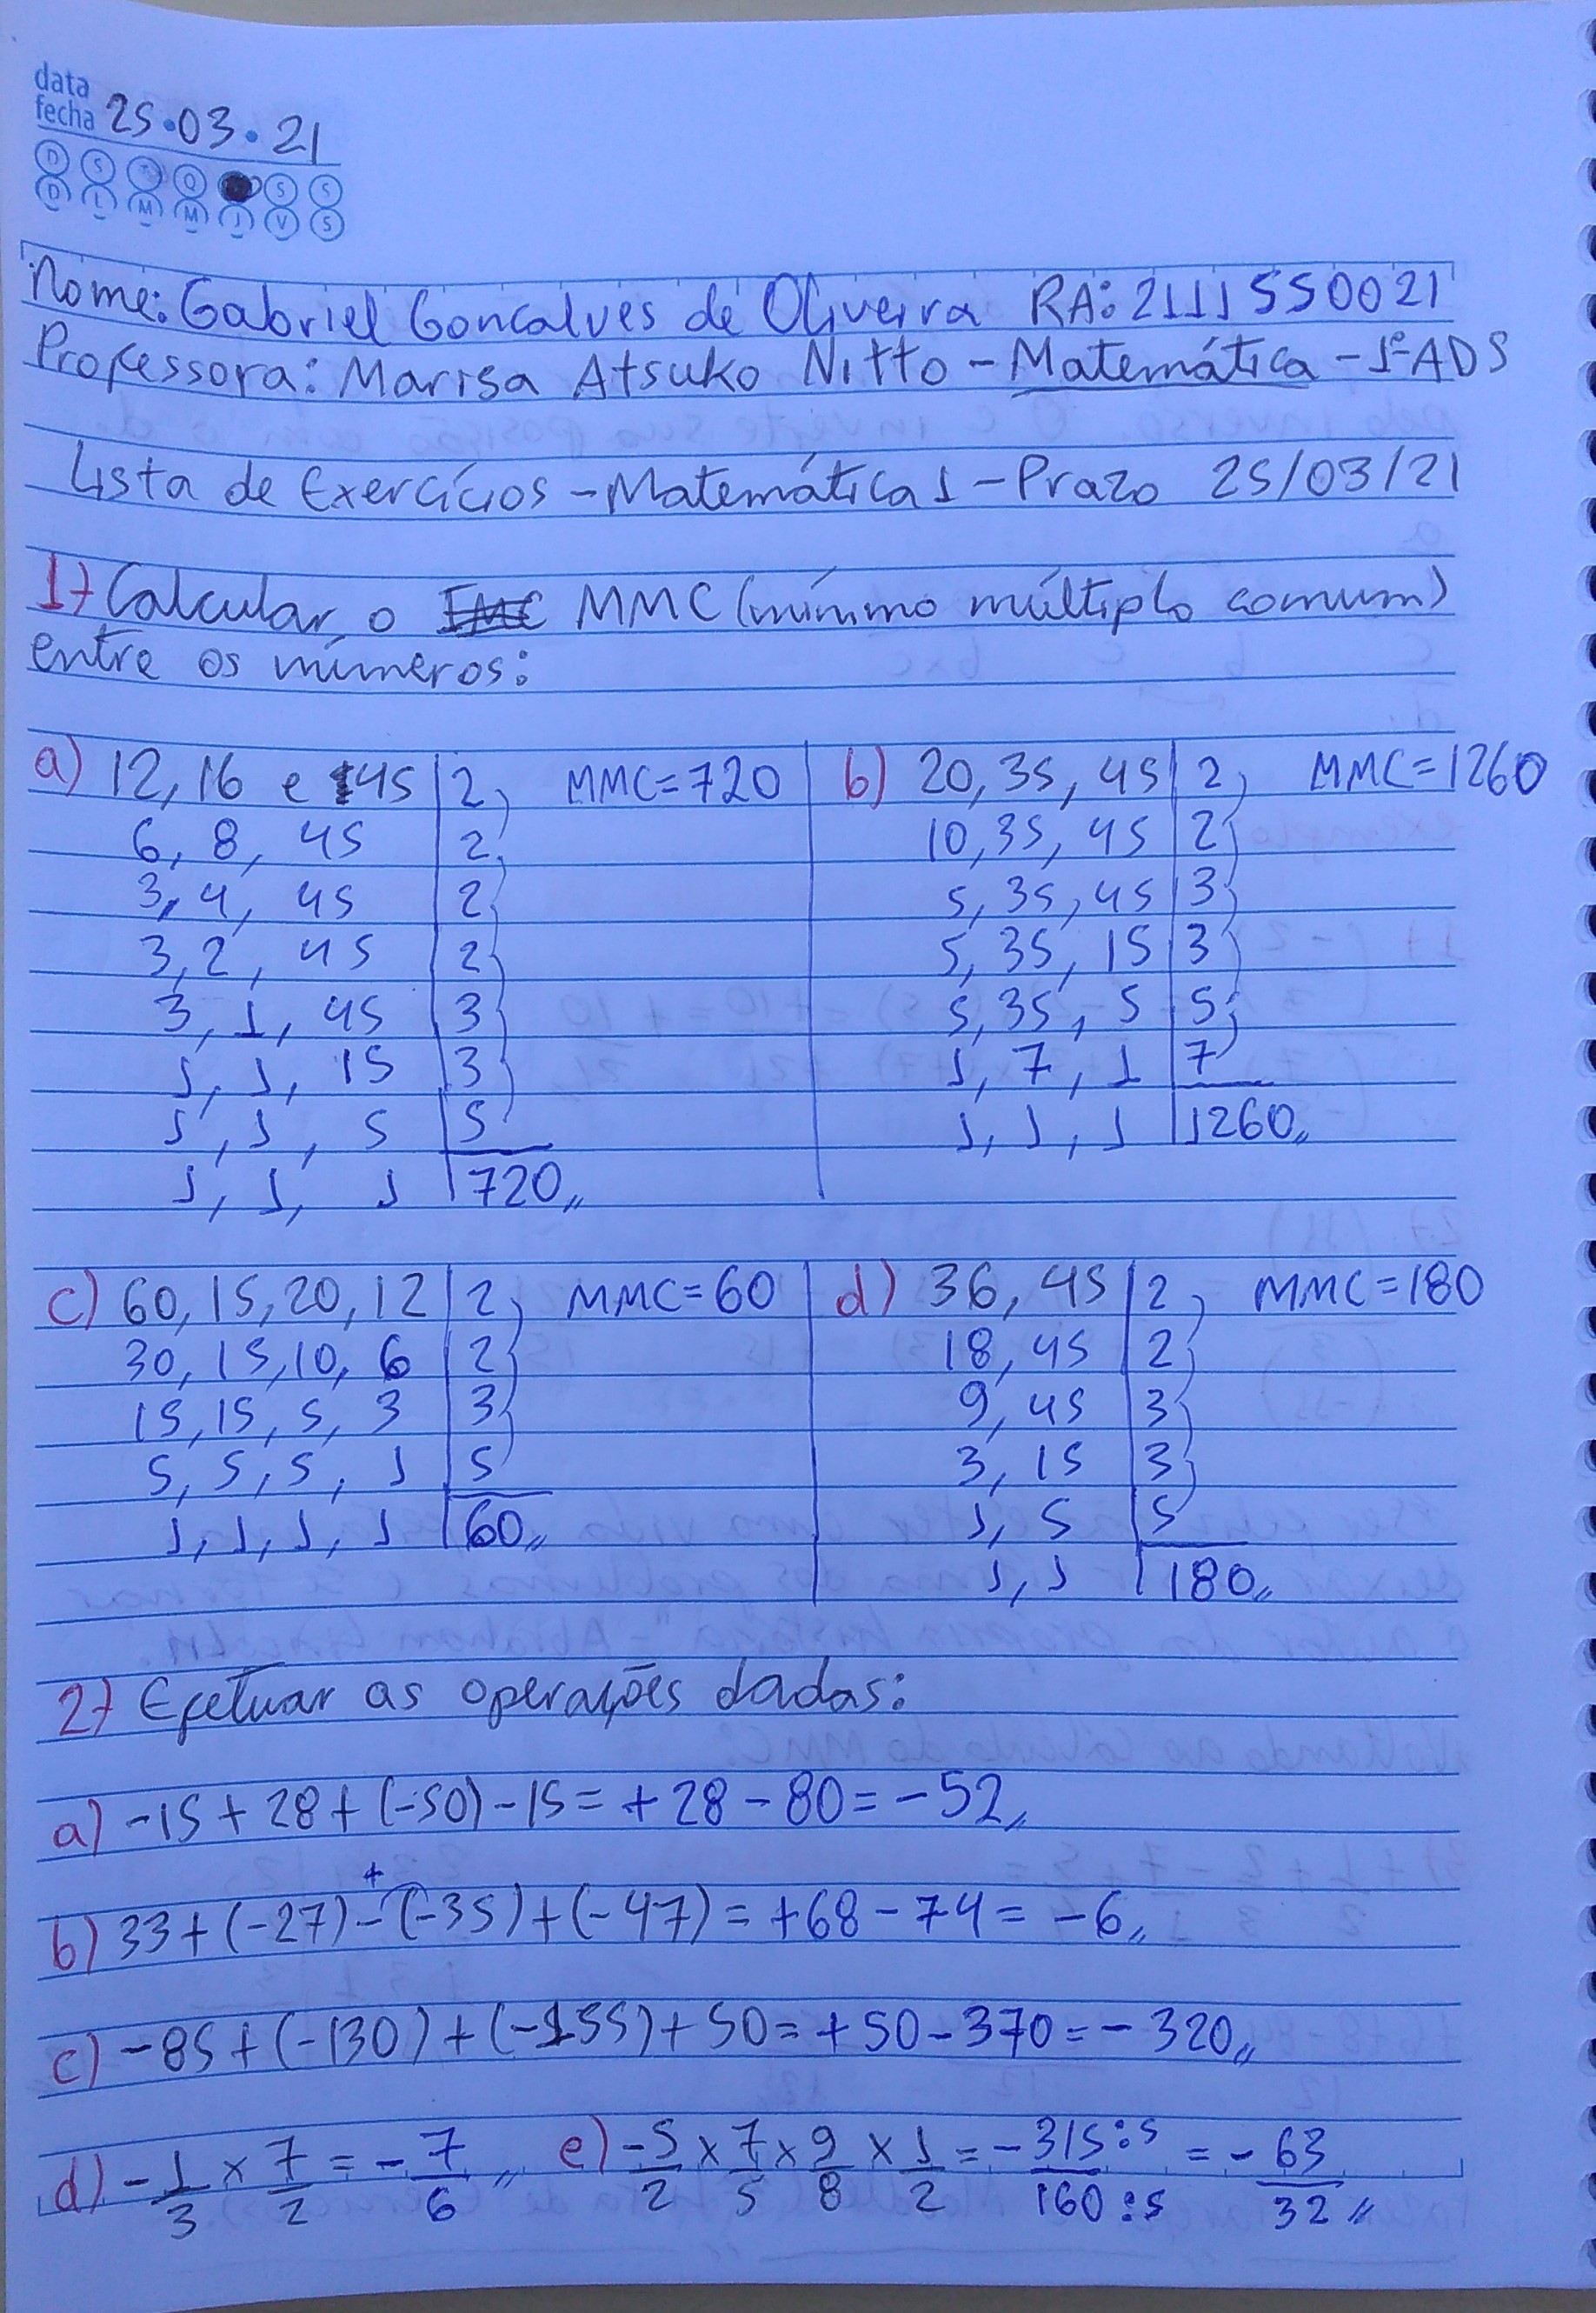 data
fecha 25.03.21
D S T Q Q S S
D L M M J V S
Nome: Gabriel Goncalves de Oliveira RA: 2111550021
Professora: Marisa Atsuko Nitto - Matemática - 1º ADS
Lista de Exercícios - Matemática 1 - Prazo 25/03/21
1) Calcular o MMC (mínimo múltiplo comum)
entre os números:
a) 12, 16 e 45 | 2, MMC = 720
6, 8, 45 | 2
3, 4, 45 | 2
3, 2, 45 | 2
3, 1, 45 | 3
1, 1, 15 | 3
1, 1, 5 | 5
1, 1, 1 | 720,,
b) 20, 35, 45 | 2, MMC = 1260
10, 35, 45 | 2
5, 35, 45 | 3
5, 35, 15 | 3
5, 35, 5 | 5
1, 7, 1 | 7
1, 1, 1 | 1260,,
c) 60, 15, 20, 12 | 2, MMC = 60
30, 15, 10, 6 | 2
15, 15, 5, 3 | 3
5, 5, 5, 1 | 5
1, 1, 1, 1 | 60,,
d) 36, 45 | 2, MMC = 180
18, 45 | 2
9, 45 | 3
3, 15 | 3
1, 5 | 5
1, 1 | 180,,
2) Efetuar as operações dadas:
a) -15 + 28 + (-50) - 15 = +28 - 80 = -52,,
+
b) 33 + (-27) - (-35) + (-47) = +68 - 74 = -6,,
c) -85 + (-130) + (-155) + 50 = +50 - 370 = -320,,
d) -1/3 x 7/2 = -7/6,, e) -5/2 x 7/5 x 9/8 x 1/2 = -315:5/160:5 = -63/32,,